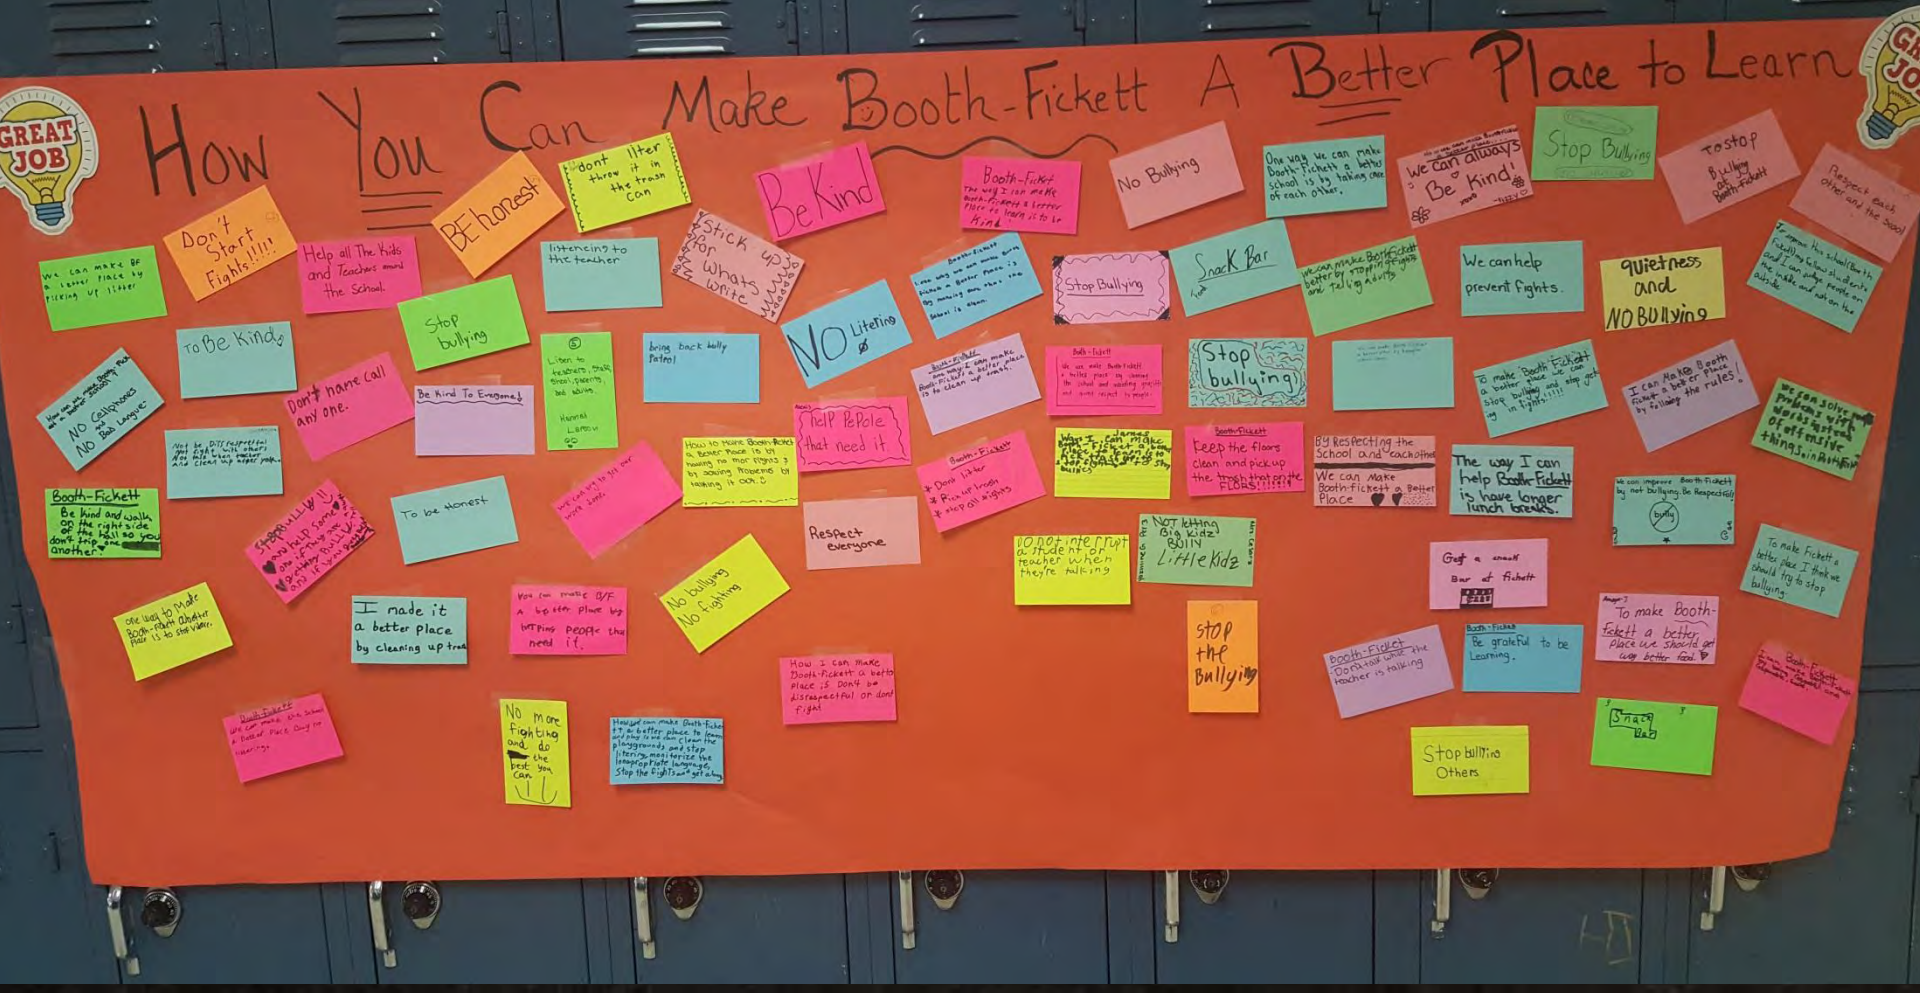 How You Can Make Booth-Fickett A Better Place to Learn
GREAT
JOB
GREAT
JOB
We can make BF
a better place by
picking up litter
Don't
Start
Fights!!!!!
Help all The Kids
and Teachers around
the School.
BE honest
dont liter
throw it in
the trash
can
Be Kind
Booth-Ficket
The way I can make
Booth-Fickett a better
place to learn is to be
Kind
No Bullying
One way we can make
Booth-Fickett a better
school is by taking care
of each other.
We can always
Be Kind!
Stop Bullying
To stop
Bullying
at
Booth-fickett
Respect each
other and the School
listencing to
the teacher
Stick up
for
Whats
write
Stop
bullying
To Be Kind
NO Litering
School is clean.
Stop Bullying
Snack Bar
We can make Booth-Fickett
better by stopping fights
and telling adults
We can help
prevent fights.
quietness
and
NO BUllying
NO Cellphones
and
NO Bad Language
Don't name call
any one.
Be Kind To Everyone!
5
Listen to
teachers, staff,
school, parents,
and adults.
bring back bully
Patrol
Booth-Fickett
one way I can make
Booth-Fickett a better place
is to clean up trash.
Booth-Fickett
Stop
bullying
To make Booth Fickett
a better place we can
stop bullying and stop get
ing in fights!!!!!
I can Make Booth
Fickett a better Place
by following the rules!
We can solve
Problems with
words instead
of offensive
things in Booth-Fickett
Not be Disrespectful
not fight with others
Not talk when teacher
and clean up after you.
How to Make Booth-Fickett
a Better Place is by
having no mor fights &
by solving Problems by
talking it out.
help PePole
that need it.
Booth-Fickett
* Dont litter
* Pick up trash
* stop all fights
James
Booth-Fickett
Keep the floors
clean and pick up
the trash that on the
FLOAS!!!!!!!
BY Respecting the
School and eachother
We can Make
Booth-Fickett a Better
Place
The way I can
help Booth-Fickett
is have longer
lunch breaks.
We can improve Booth-Fickett
by not bullying. Be Respectful.
bully
Booth-Fickett
Be kind and walk
on the right side
of the hall so you
don't trip one
another!
STOP BULLY!!
and help some
one if they are
getting BULLY
To be Honest
We can try to
work done.
Respect
everyone
DO not interrupt
a student or
teacher when
they're talking
NOT letting
Big kidz
BUlly
Little kidz
Get a snack
Bar at fickett
To make Fickett a
better place I think we
should try to stop
bullying.
one way to Make
Booth-Fickett a better
Place is to stop
I made it
a better place
by cleaning up trash
You can make B/F
A better Place by
helping people that
need it.
No bullying
No fighting
How I can make
Booth-Fickett a better
Place is Don't be
disrespectful or dont
fight
stop
the
Bullying
Booth-Ficket
-Don't talk while the
teacher is talking
Booth-Ficket
Be grateful to be
Learning.
To make Booth-
fickett a better
place we should get
way better food.
Booth-Fickett
Booth-Fickett
We can make the School
a better Place
No more
fighting
and do
the
best you
can
How we can make Booth-Ficket
a better place to learn
and play is we can clean the
playgrounds and stop
litering, monitorize the
innapropriate language,
Stop the fights and get along
Stop bullying
Others
Snack
Bar